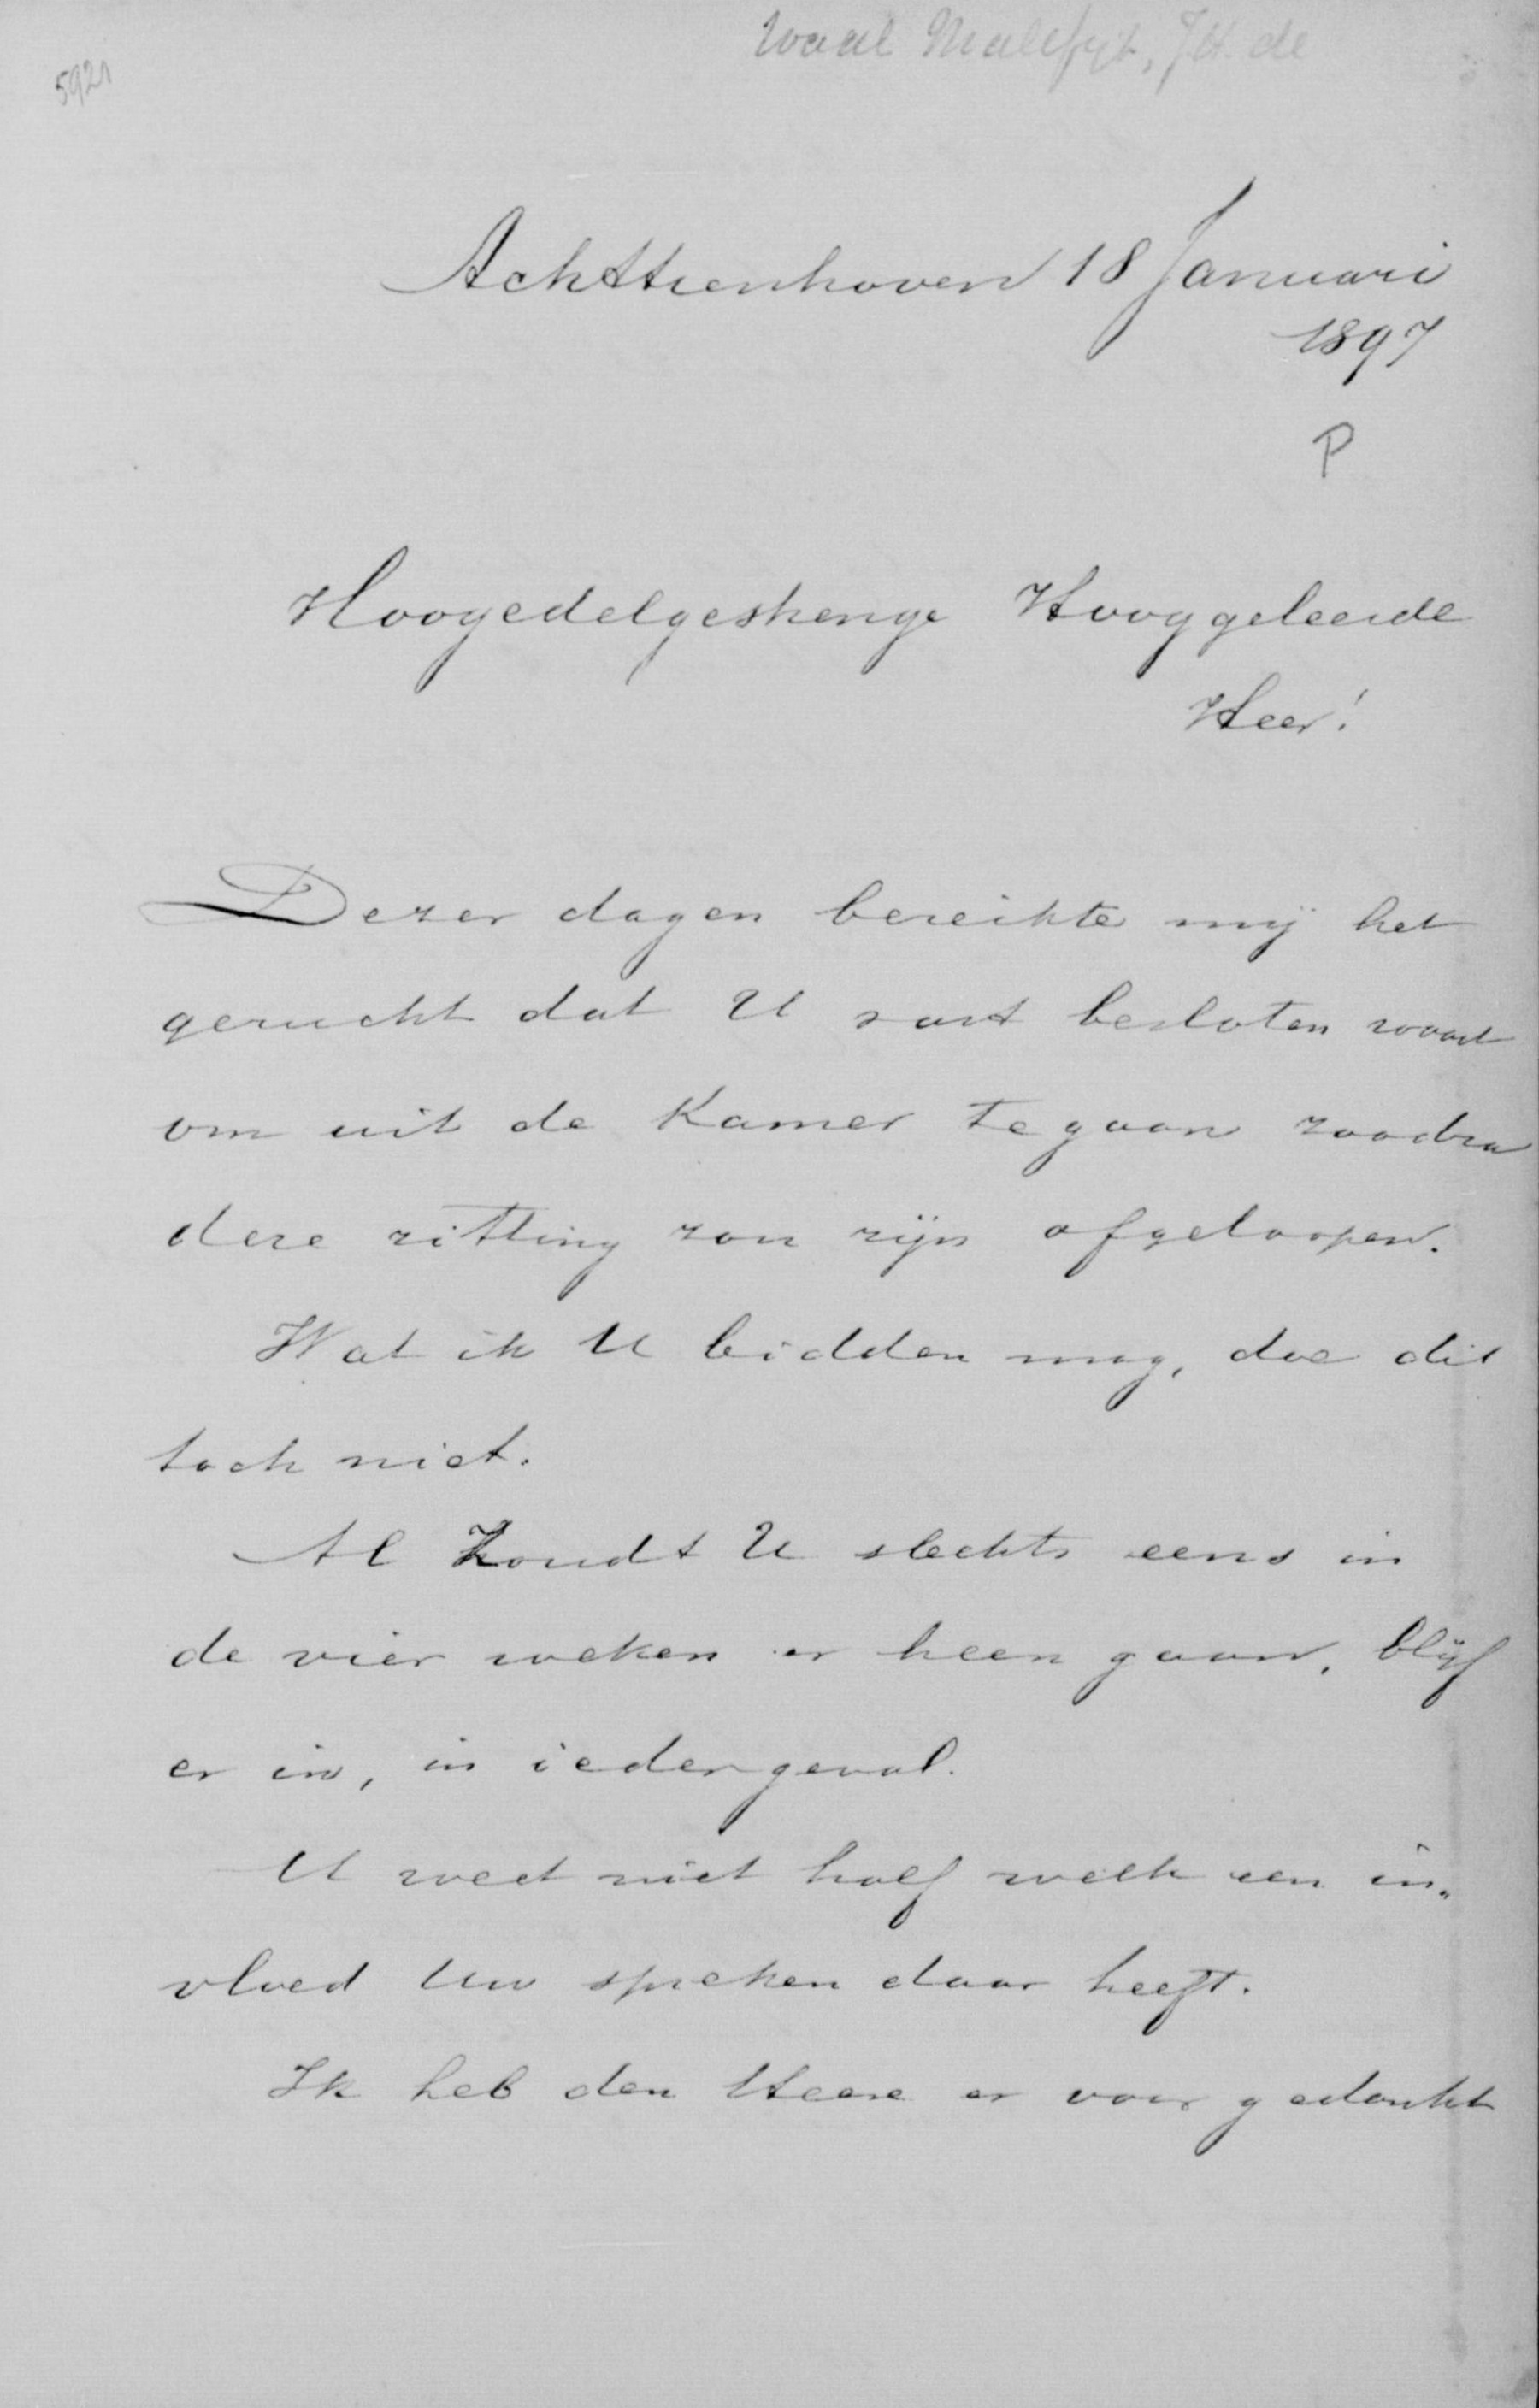 Waal Malefijt, J.H. de
5921
Achttienhoven 18 Januari
1897
P
Hoogedelgestrenge Hooggeleerde
Heer!
Dezer dagen bereikte mij het
gerucht dat U vast besloten waart
om uit de Kamer te gaan zoodra
deze zitting zou zijn afgeloopen.
Wat ik U bidden mag, doe dit
toch niet.
Al Zoudt U slechts eens in
de vier weken er heen gaan, blijf
er in, in ieder geval.
U weet niet half welk een in„
vloed Uw spreken daar heeft.
Ik heb den Heere er voor gedankt